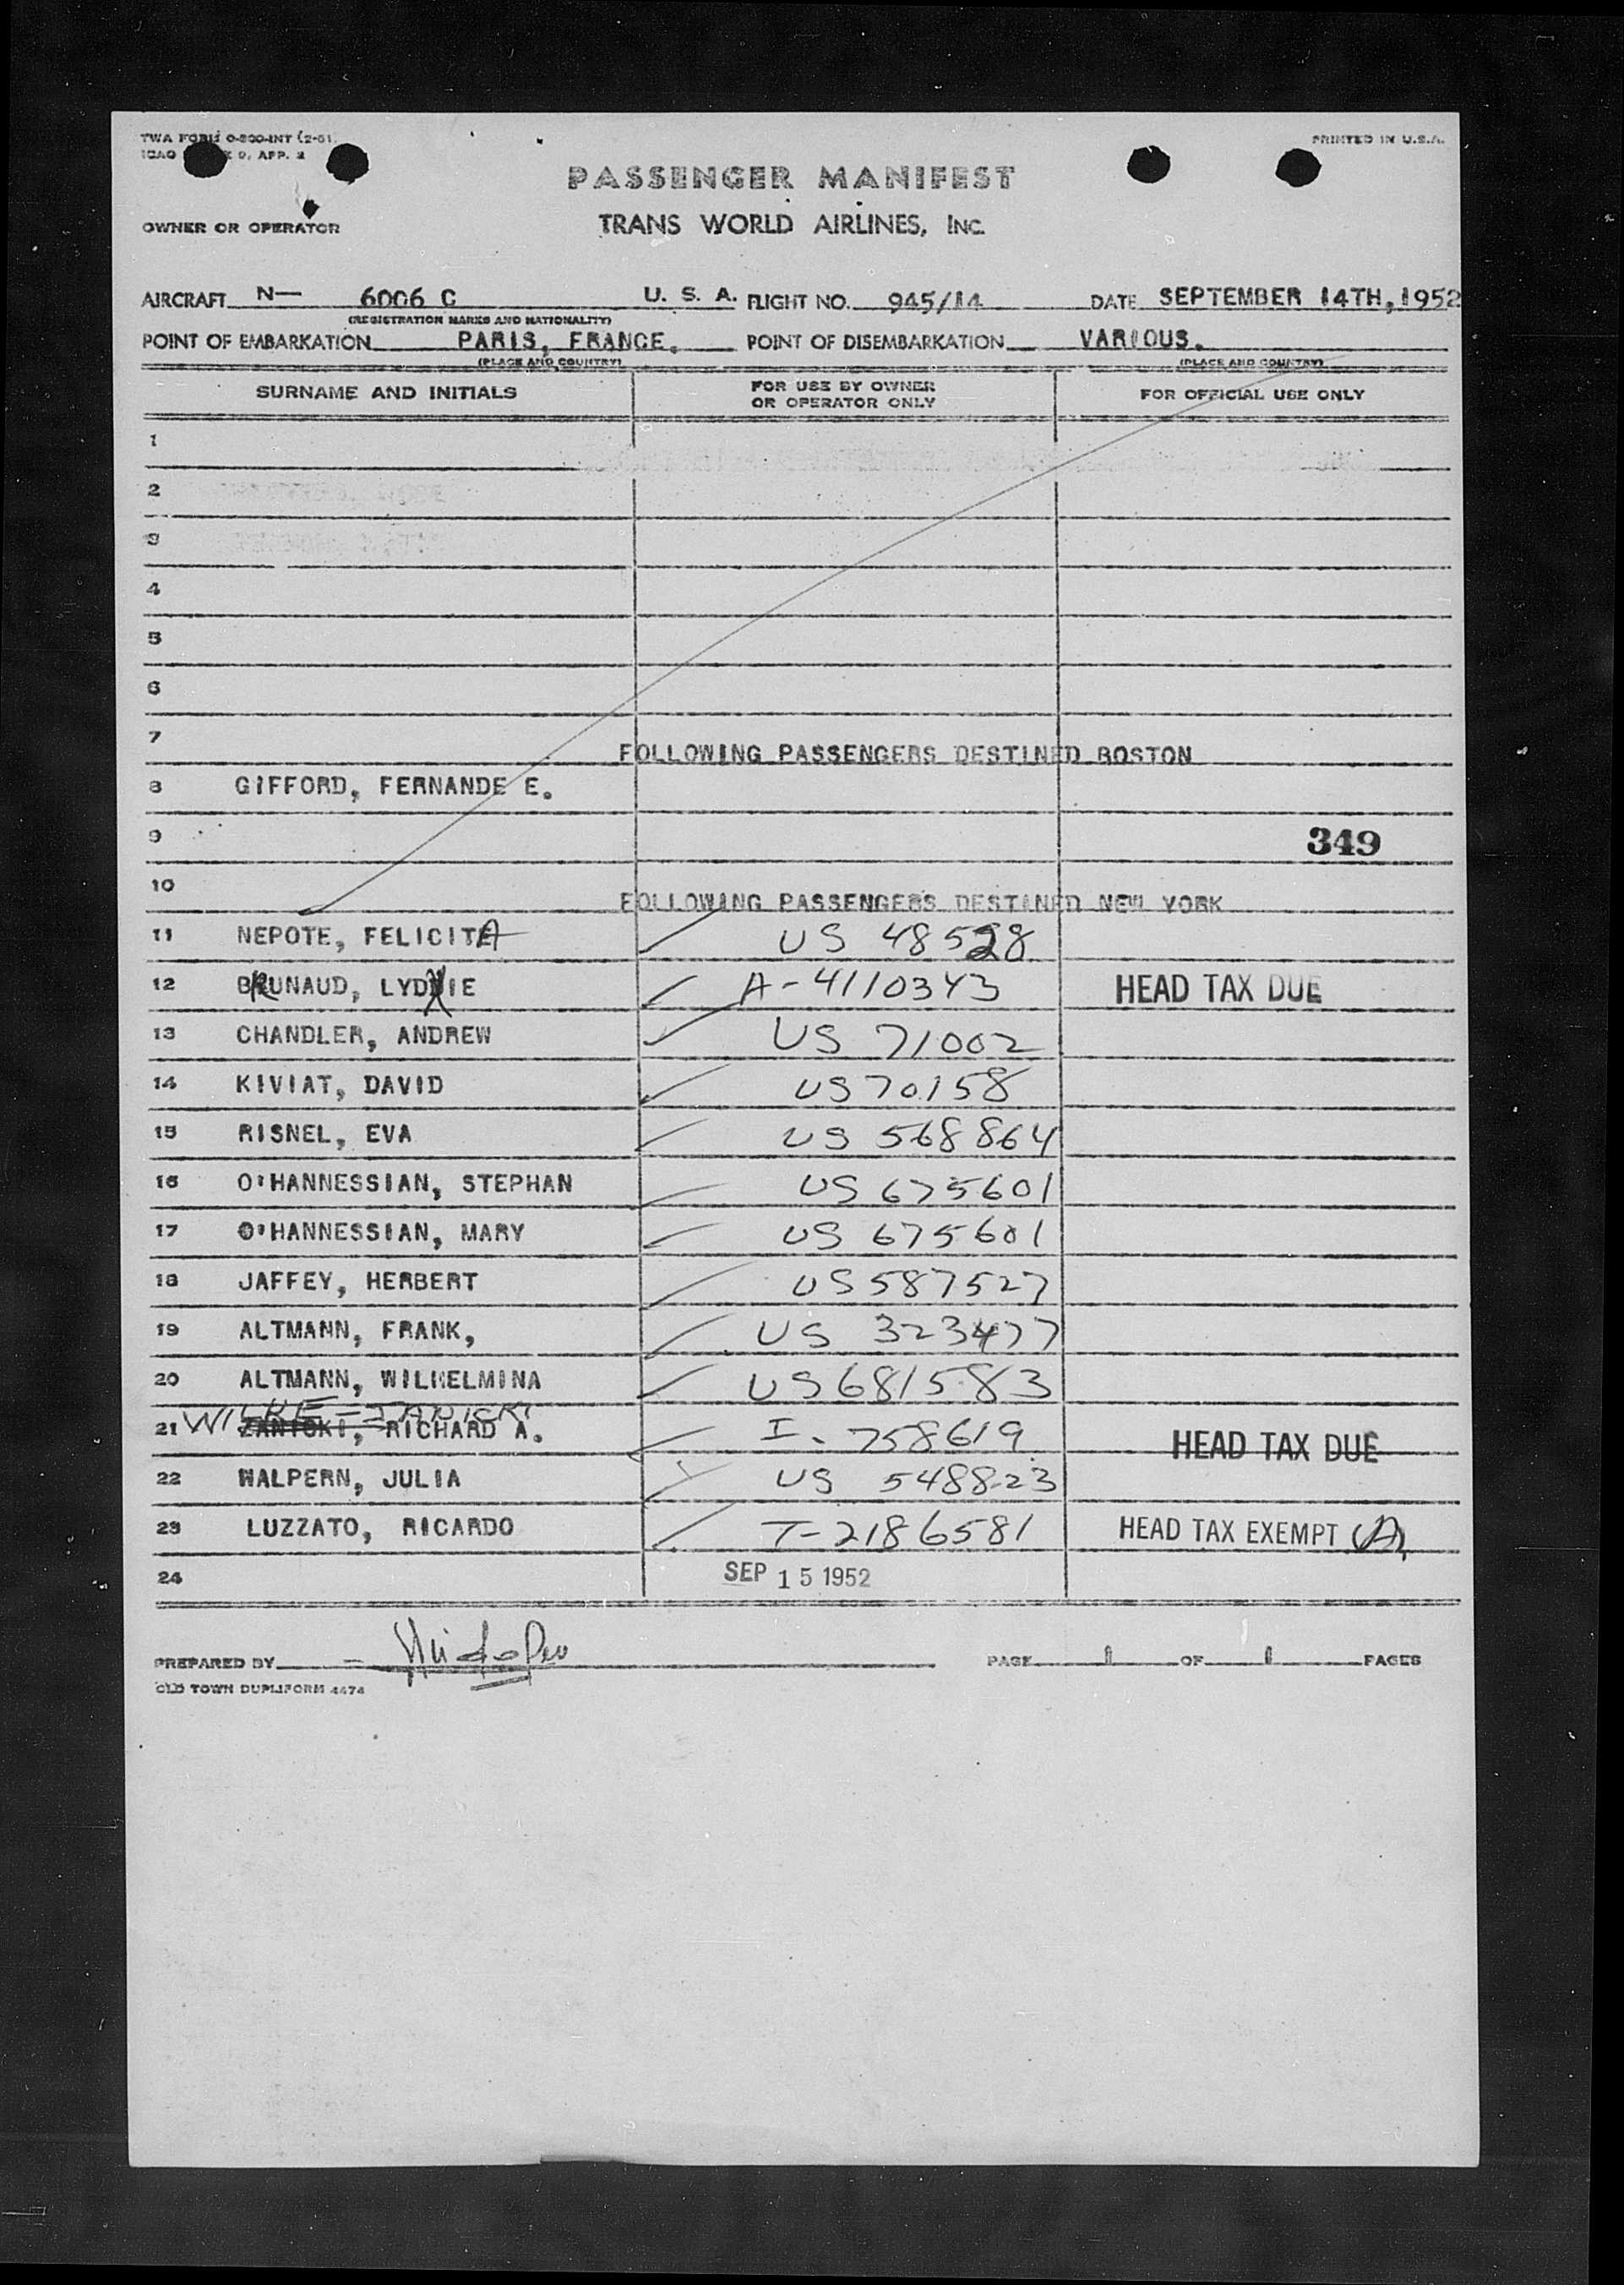 TWA FORM O-800-INT (2-51)
ICAO 9, APP. 2
PRINTED IN U.S.A.
PASSENGER MANIFEST
OWNER OR OPERATOR
TRANS WORLD AIRLINES, INC.
AIRCRAFT N— 6006 C U. S. A. FLIGHT NO. 945/14 DATE SEPTEMBER 14TH, 1952
(REGISTRATION MARKS AND NATIONALITY)
POINT OF EMBARKATION PARIS, FRANCE. POINT OF DISEMBARKATION VARIOUS.
(PLACE AND COUNTRY) (PLACE AND COUNTRY)
SURNAME AND INITIALS FOR USE BY OWNER OR OPERATOR ONLY FOR OFFICIAL USE ONLY
1
2
3
4
5
6
7 FOLLOWING PASSENGERS DESTINED BOSTON
8 GIFFORD, FERNANDE E.
9 349
10 FOLLOWING PASSENGERS DESTINED NEW YORK
11 NEPOTE, FELICITA US 48528
12 BRUNAUD, LYDIE A-4110343 HEAD TAX DUE
13 CHANDLER, ANDREW US 71002
14 KIVIAT, DAVID US 70158
15 RISNEL, EVA US 568864
16 O'HANNESSIAN, STEPHAN US 675601
17 O'HANNESSIAN, MARY US 675601
18 JAFFEY, HERBERT US 587527
19 ALTMANN, FRANK, US 323477
20 ALTMANN, WILHELMINA US 681583
WILKE-JANICKI
21 ZANICKI, RICHARD A. I-758619 HEAD TAX DUE
22 HALPERN, JULIA US 548823
23 LUZZATO, RICARDO T-2186581 HEAD TAX EXEMPT (A)
24 SEP 15 1952
PREPARED BY PAGE 1 OF 1 PAGES
OLD TOWN DUPLIFORM 4474